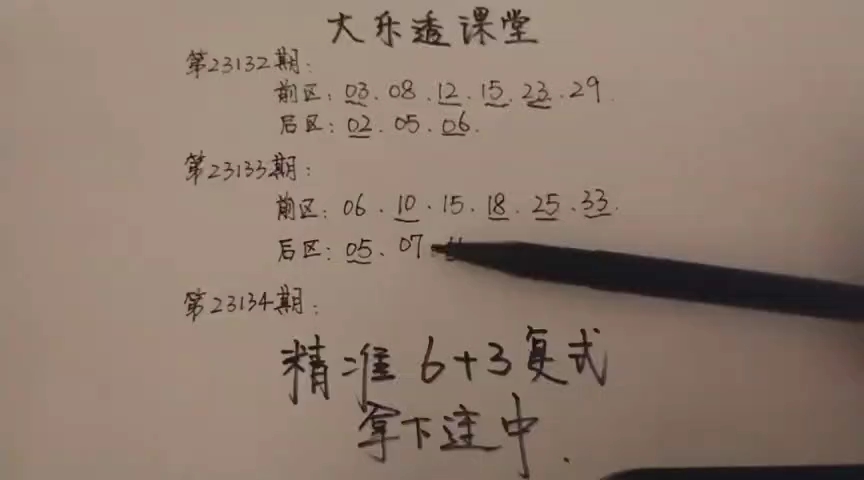 大乐透课堂
第23132期:
前区: 03. 08. 12. 15. 23. 29.
后区: 02. 05. 06.
第23133期:
前区: 06. 10. 15. 18. 25. 33.
后区: 05. 07
第23134期:
精准 6+3复式
拿下连中.